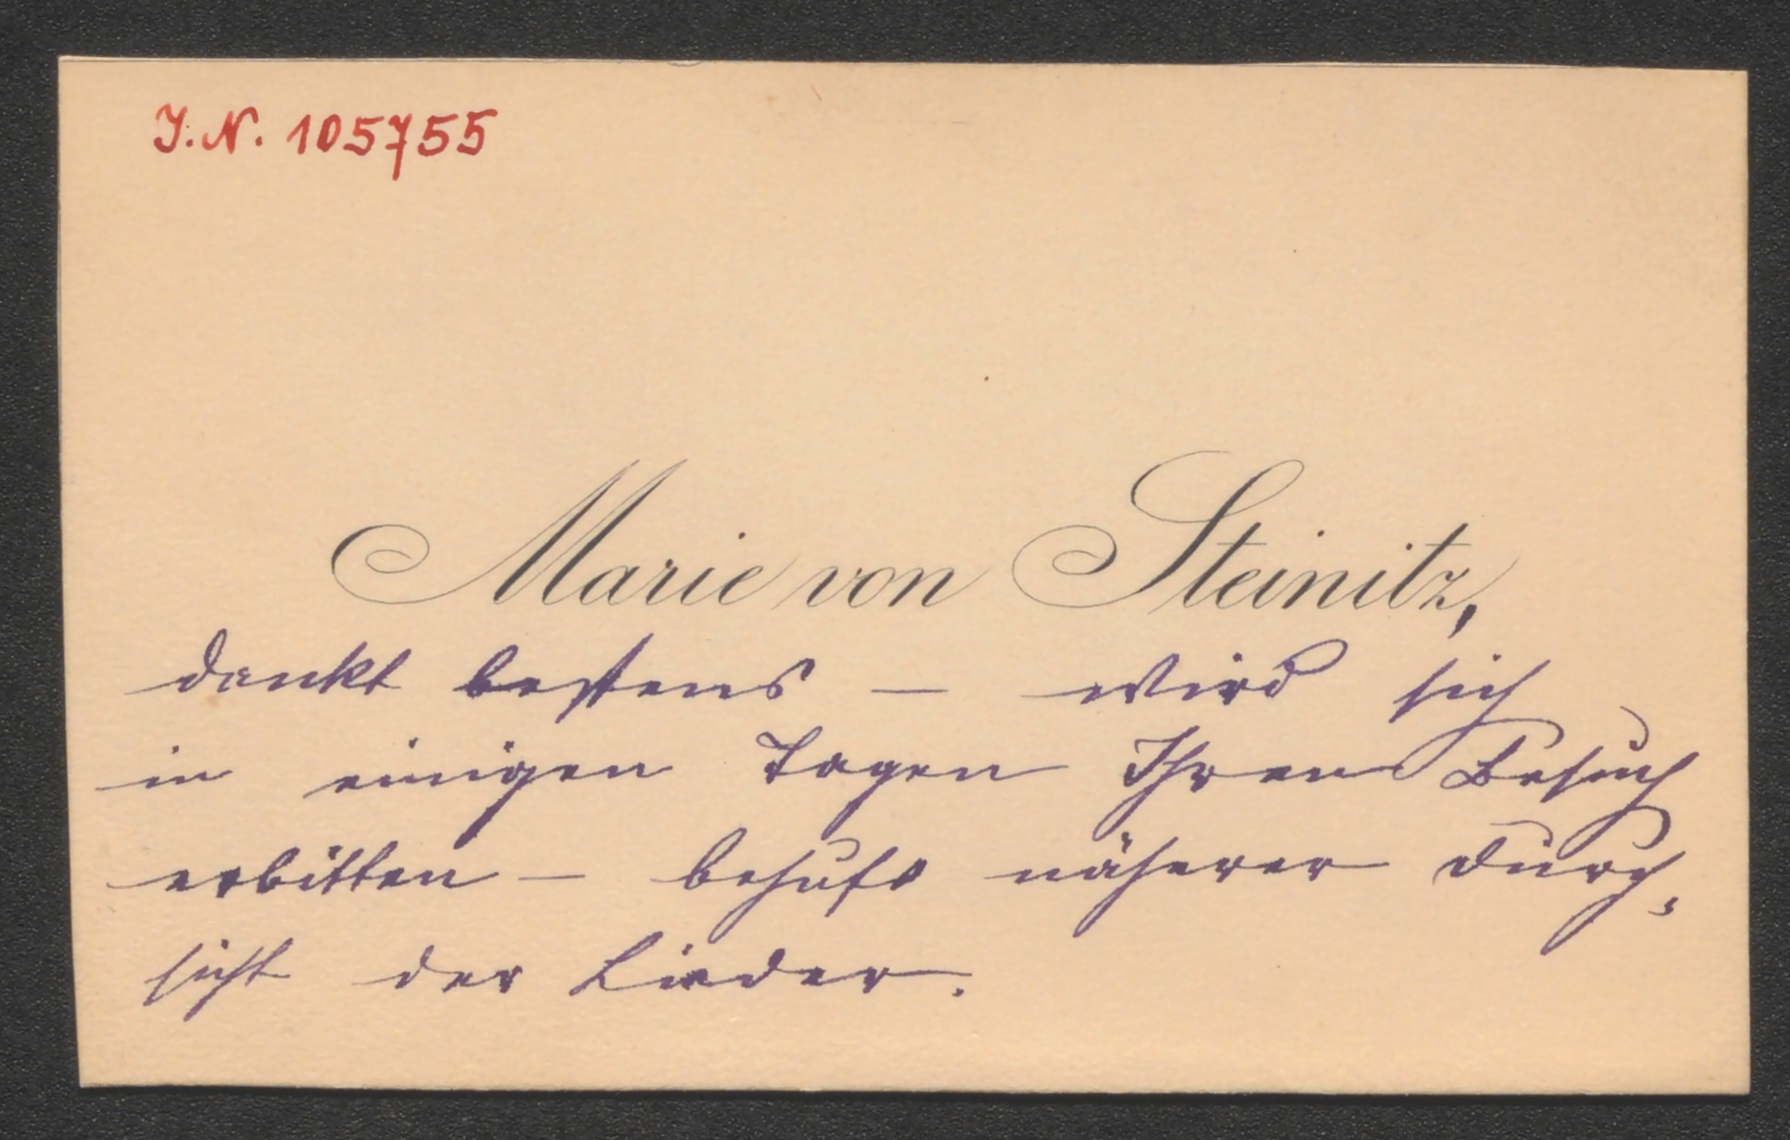 J.N. 105755
Marie von Steinitz,
dankt bestens — wird sich
in einigen Tagen Ihren Besuch
erbitten — behufs näherer Durch-
sicht der Lieder.